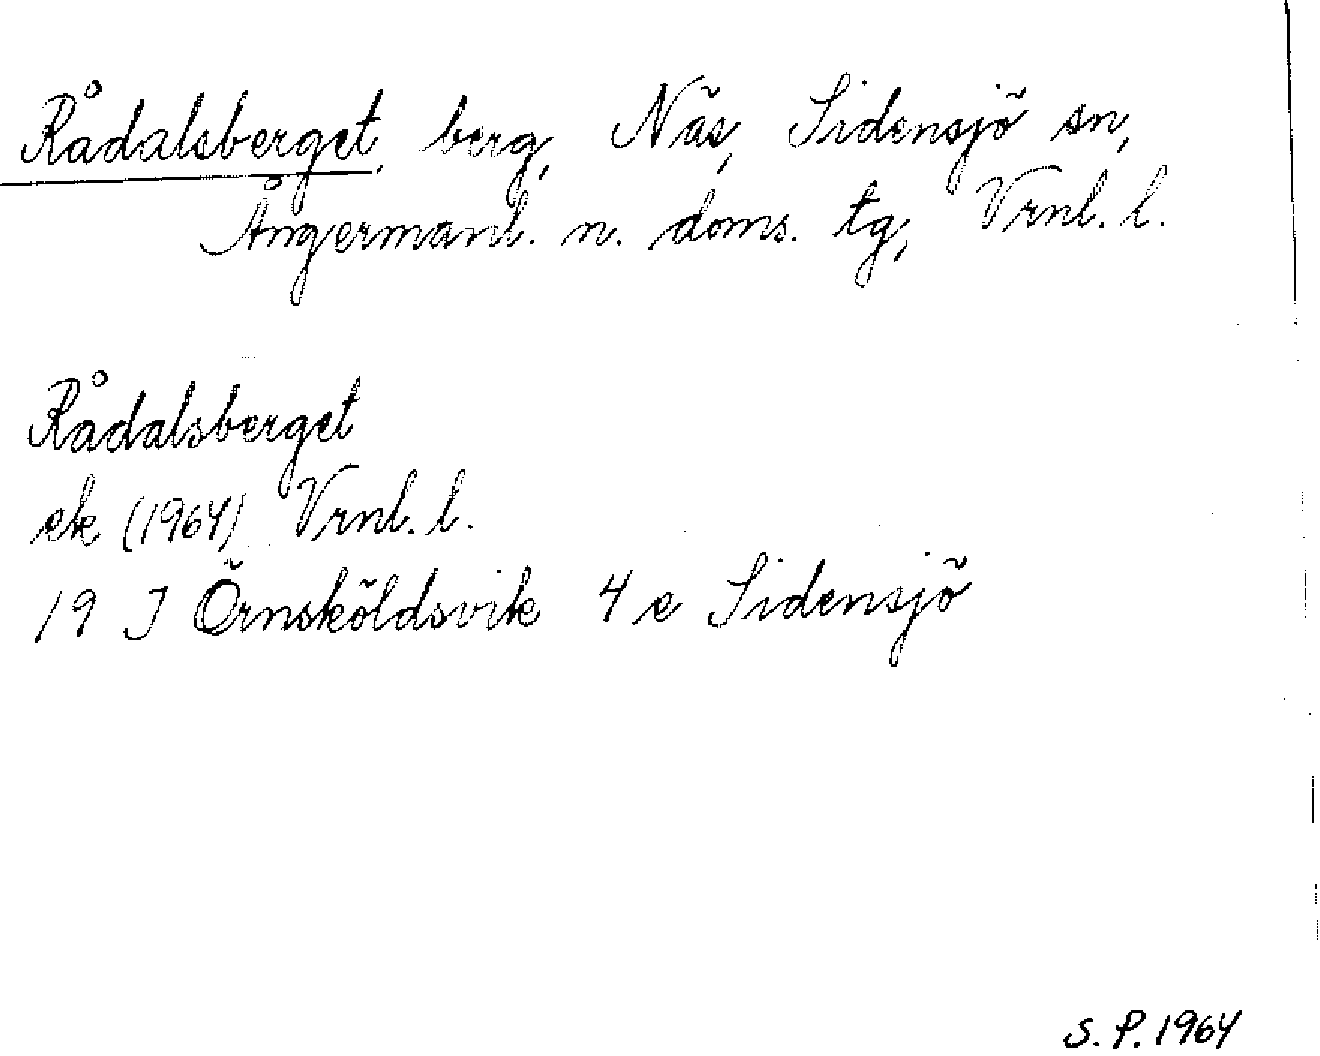 Rådalsberget, berg, Näs, Sidensjö sn,
Ångermanl. n. doms. tg, Vrnl. l.
Rådalsberget
ek (1964) Vrnl. l.
19 J Örnsköldsvik 4 e Sidensjö
S. P. 1964